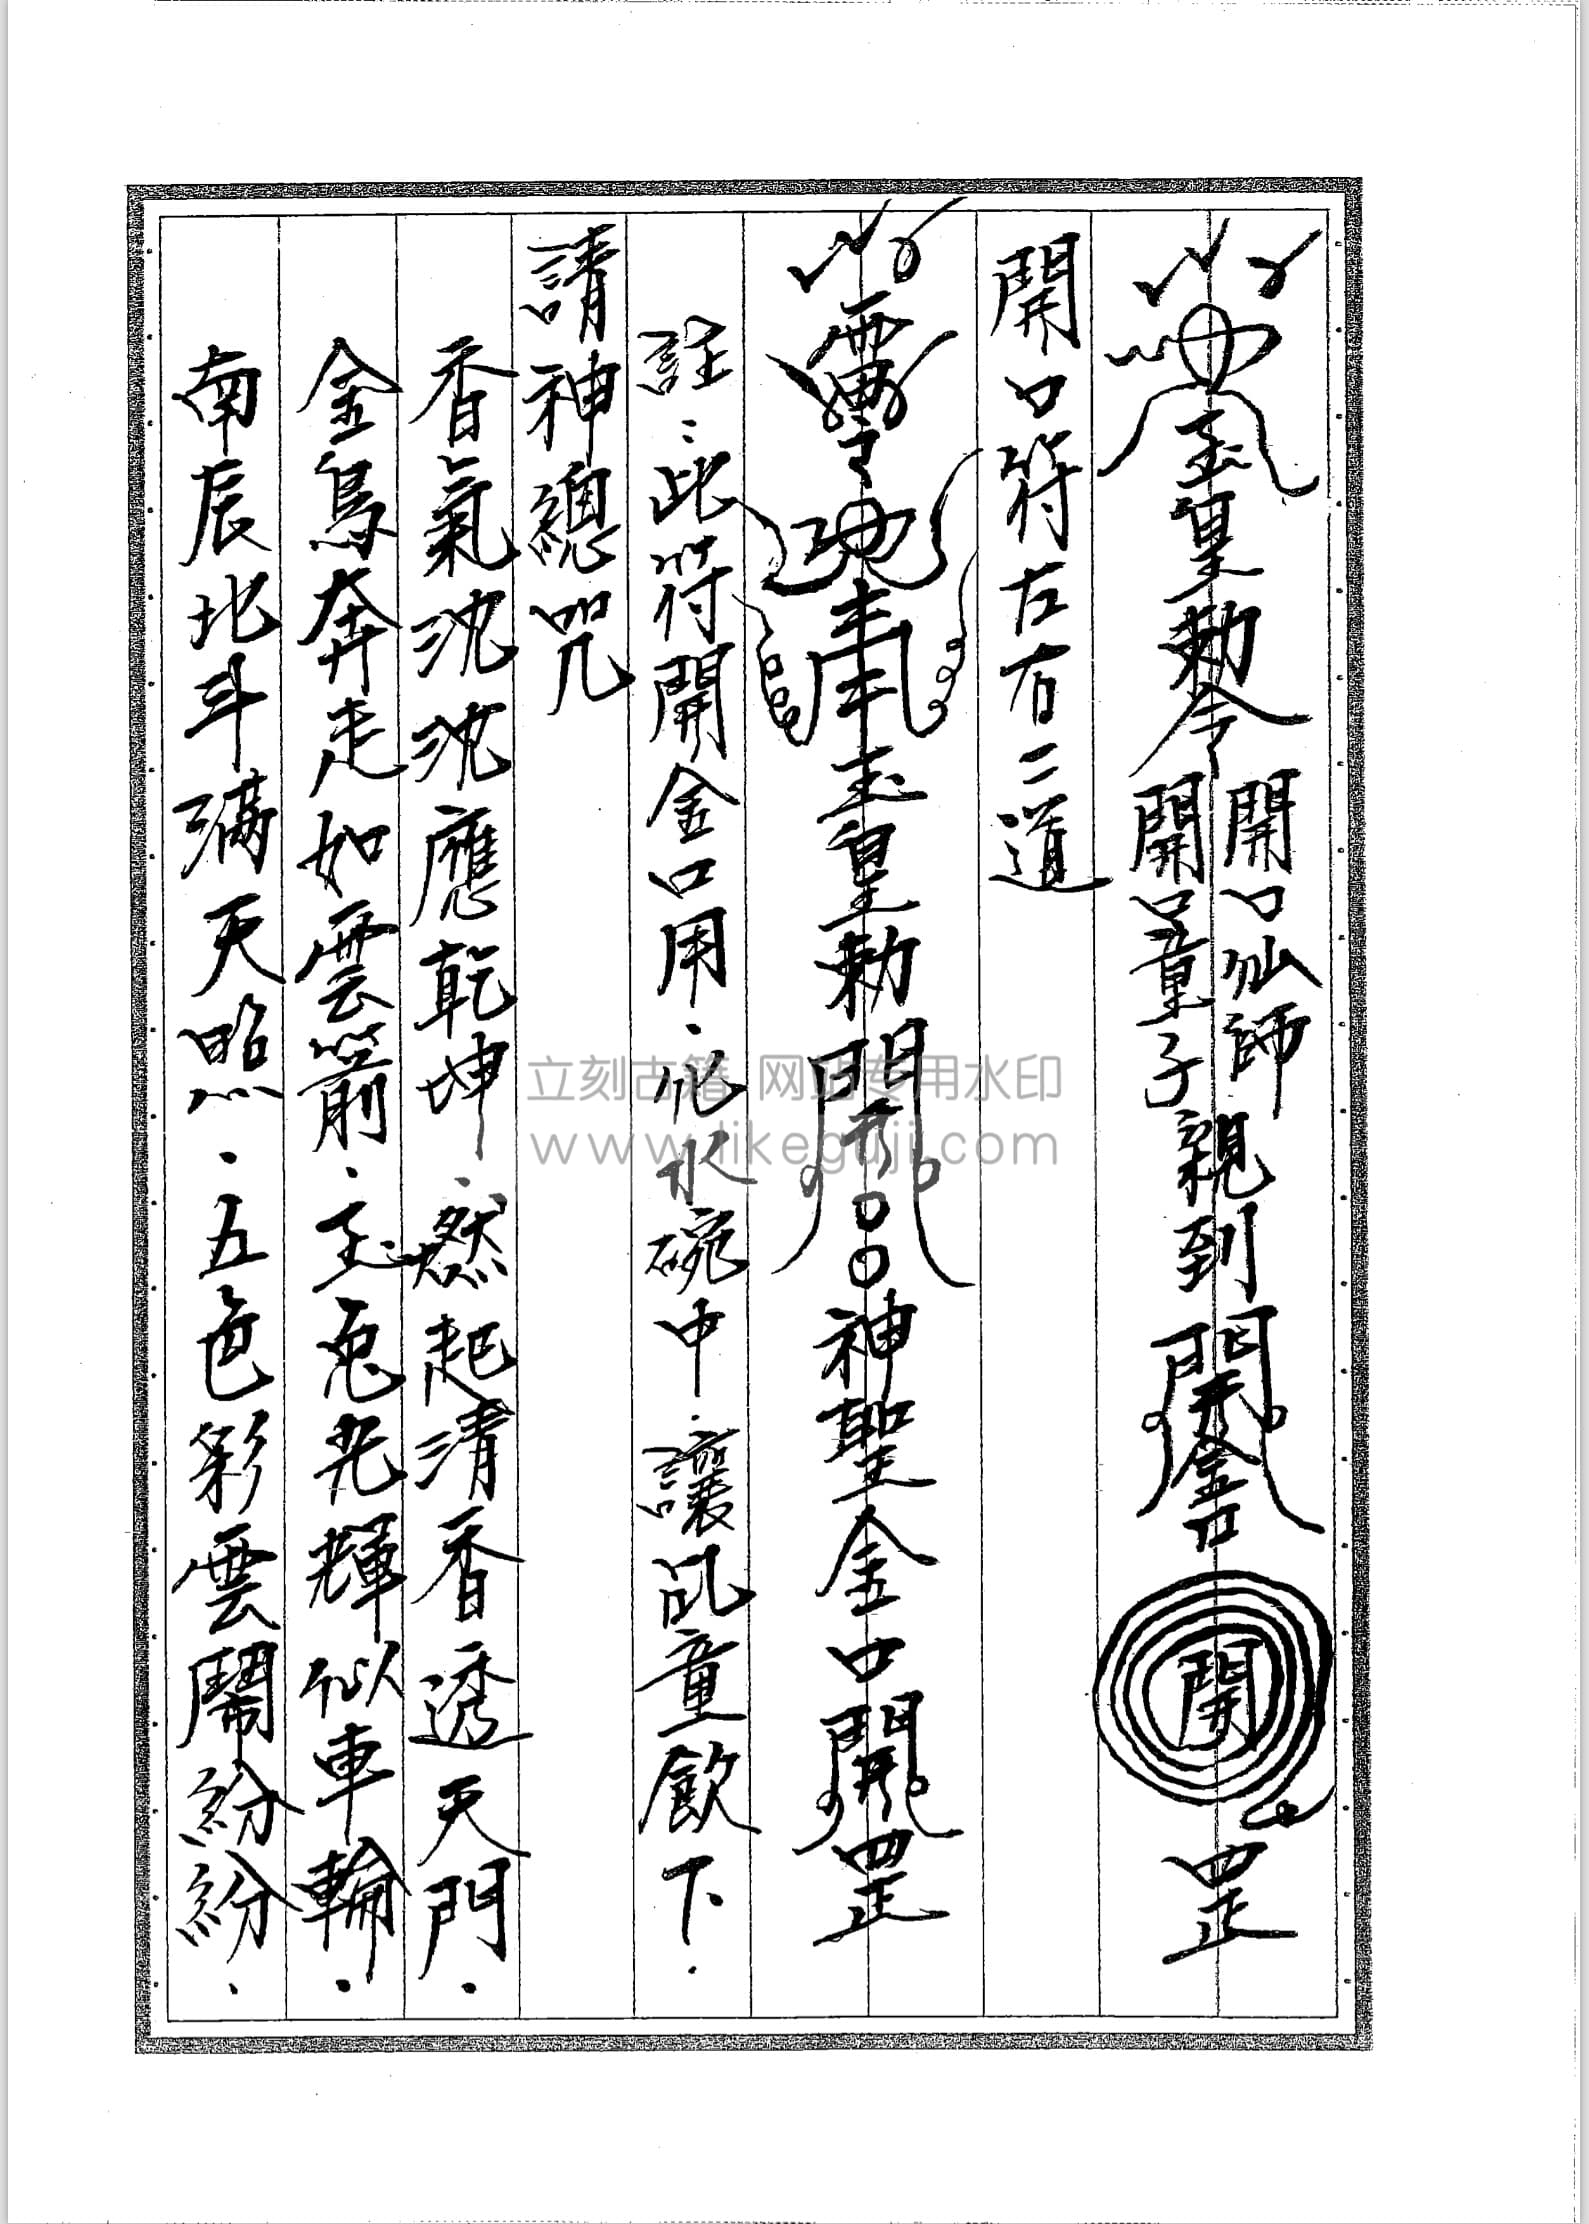 玉皇勅令 開口仙師 開口童子 親到開金口 開 罡
開口符左右二道
玉皇勅開口口神聖金口開罡
註:此符開金口用.化水碗中.讓乩童飲下.
請神總咒
香氣沈沈應乾坤.燃起清香透天門.
金鳥奔走如雲箭.玉兎光輝似車輪.
南辰北斗滿天照.五色彩雲鬧紛紛.
立刻古籍 网站专用水印
www.likeguji.com